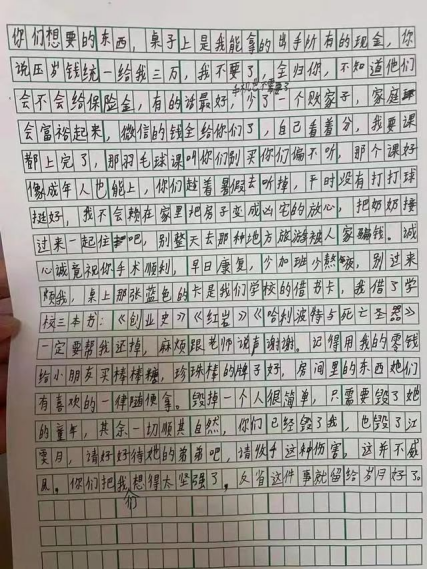 你们想要的东西，桌子上是我能拿的出手所有的现金，你
说压岁钱统一给我三万，我不要了，全归你，不知道他们
手机也不需要了
会不会给保险金，有的话最好，少了一个败家子，家庭
会富裕起来，微信的钱全给你们了，自己看着分，我要课
都上完了，那羽毛球课叫你们别买你们偏不听，那个课好
像成年人也能上，你们趁着暑假去听掉，平时没有打打球
挺好，我不会赖在家里把房子变成凶宅的放心，把奶奶接
过来一起住吧，别整天去那种地方旅游被人家骗钱。诚
心诚意祝你手术顺利，早日康复，少加班少熬夜，别过来
烦我，桌上那张蓝色的卡是我们学校的借书卡，我借了学
校三本书：《创业史》《红岩》《哈利波特与死亡圣器》
一定要帮我还掉，麻烦跟老师说声谢谢。记得用我的零钱
给小朋友买棒棒糖，珍珠棒的牌子好，房间里的东西她们
有喜欢的一律随便拿。毁掉一个人很简单，只需要毁了她
的童年，其余一切顺其自然，你们已经毁了我，也毁了江
月，请好好待她的弟弟吧，请收手这种伤害。这并不威
风。你们把我们想得太坚强了，反省这件事就留给岁月好了。